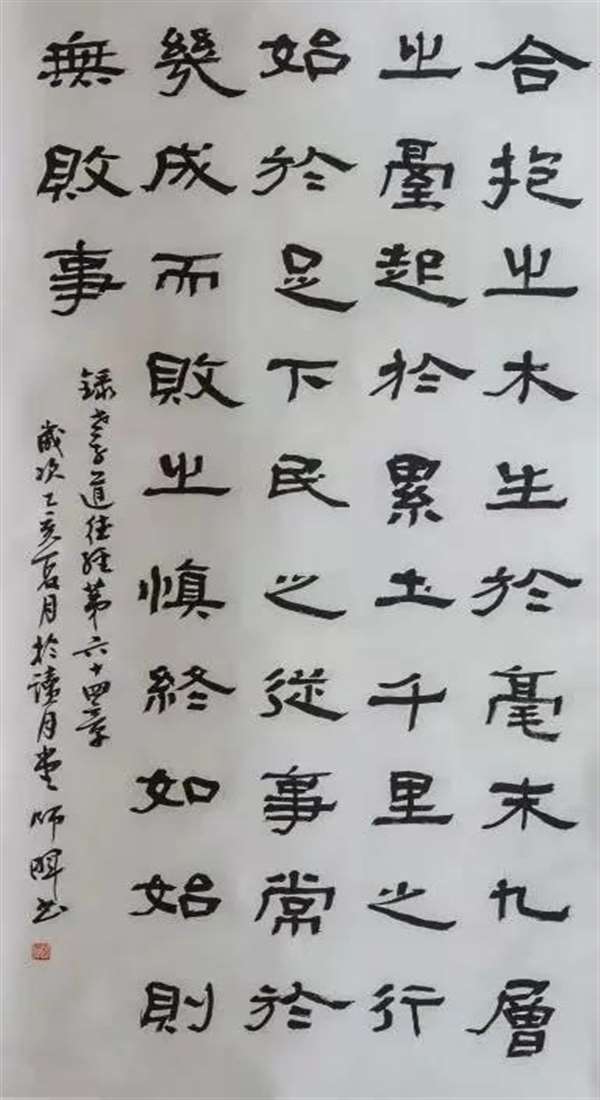 合抱之木生於毫末九層
之臺起於累土千里之行
始於足下民之從事常於
幾成而敗之慎終如始則
無敗事
録老子道德經第六十四章
歲次乙亥夏月於讀月堂師暉書